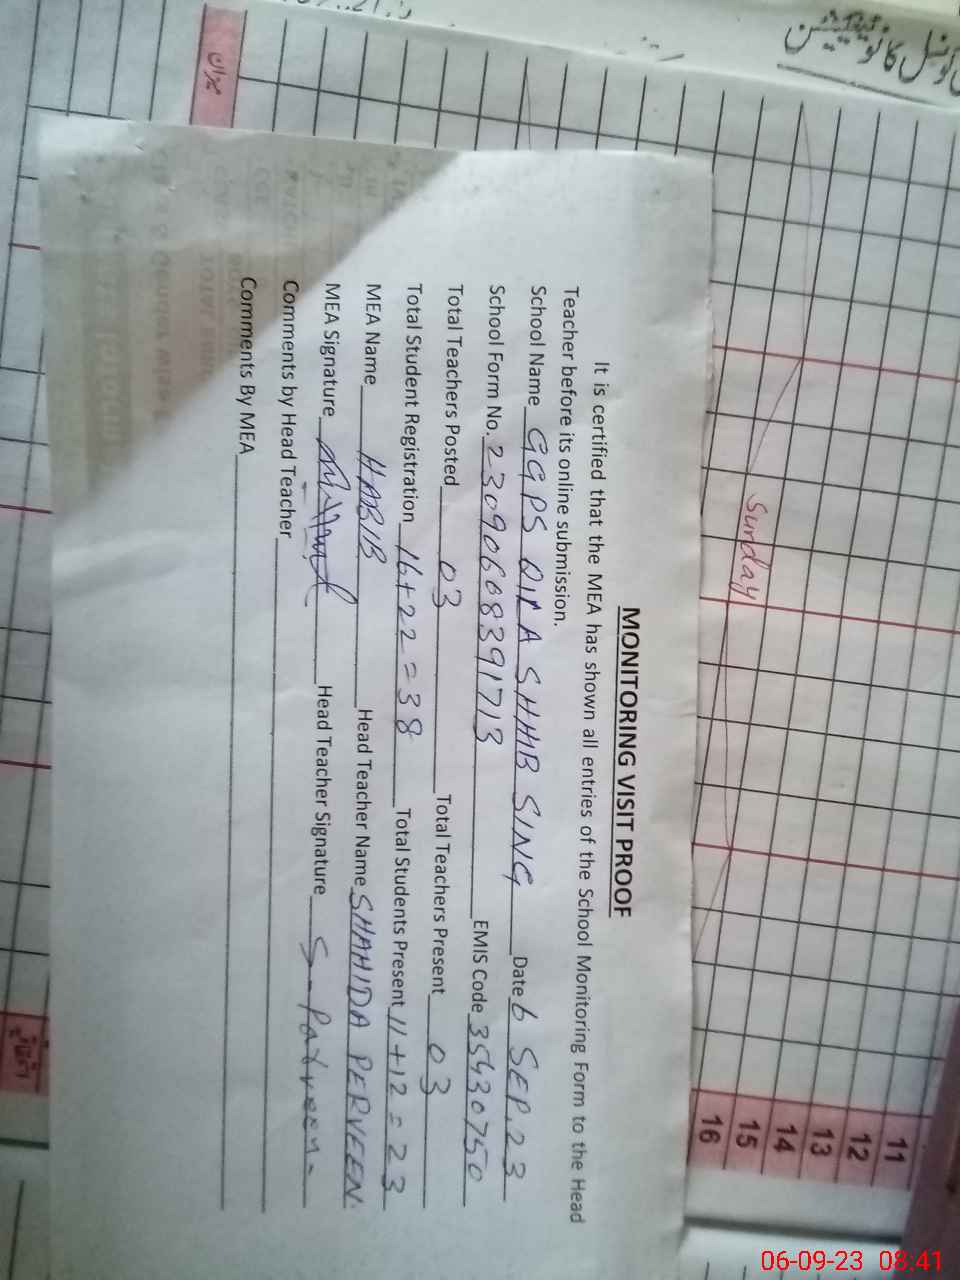 کونسل کا نوٹیفیکیشن
Sunday
11
12
13
14
15
16
میزان
MONITORING VISIT PROOF
It is certified that the MEA has shown all entries of the School Monitoring Form to the Head
Teacher before its online submission.
School Name GGPS QILA SHHIB SING Date 6 SEP.23
School Form No. 2309060839 1713 EMIS Code 35430750
Total Teachers Posted 03 Total Teachers Present 03
Total Student Registration 16+22=38 Total Students Present 11+12=23
MEA Name HABIB Head Teacher Name SHAHIDA PERVEEN
MEA Signature Head Teacher Signature S-Parveen
Comments by Head Teacher
Comments By MEA
06-09-23 08:41